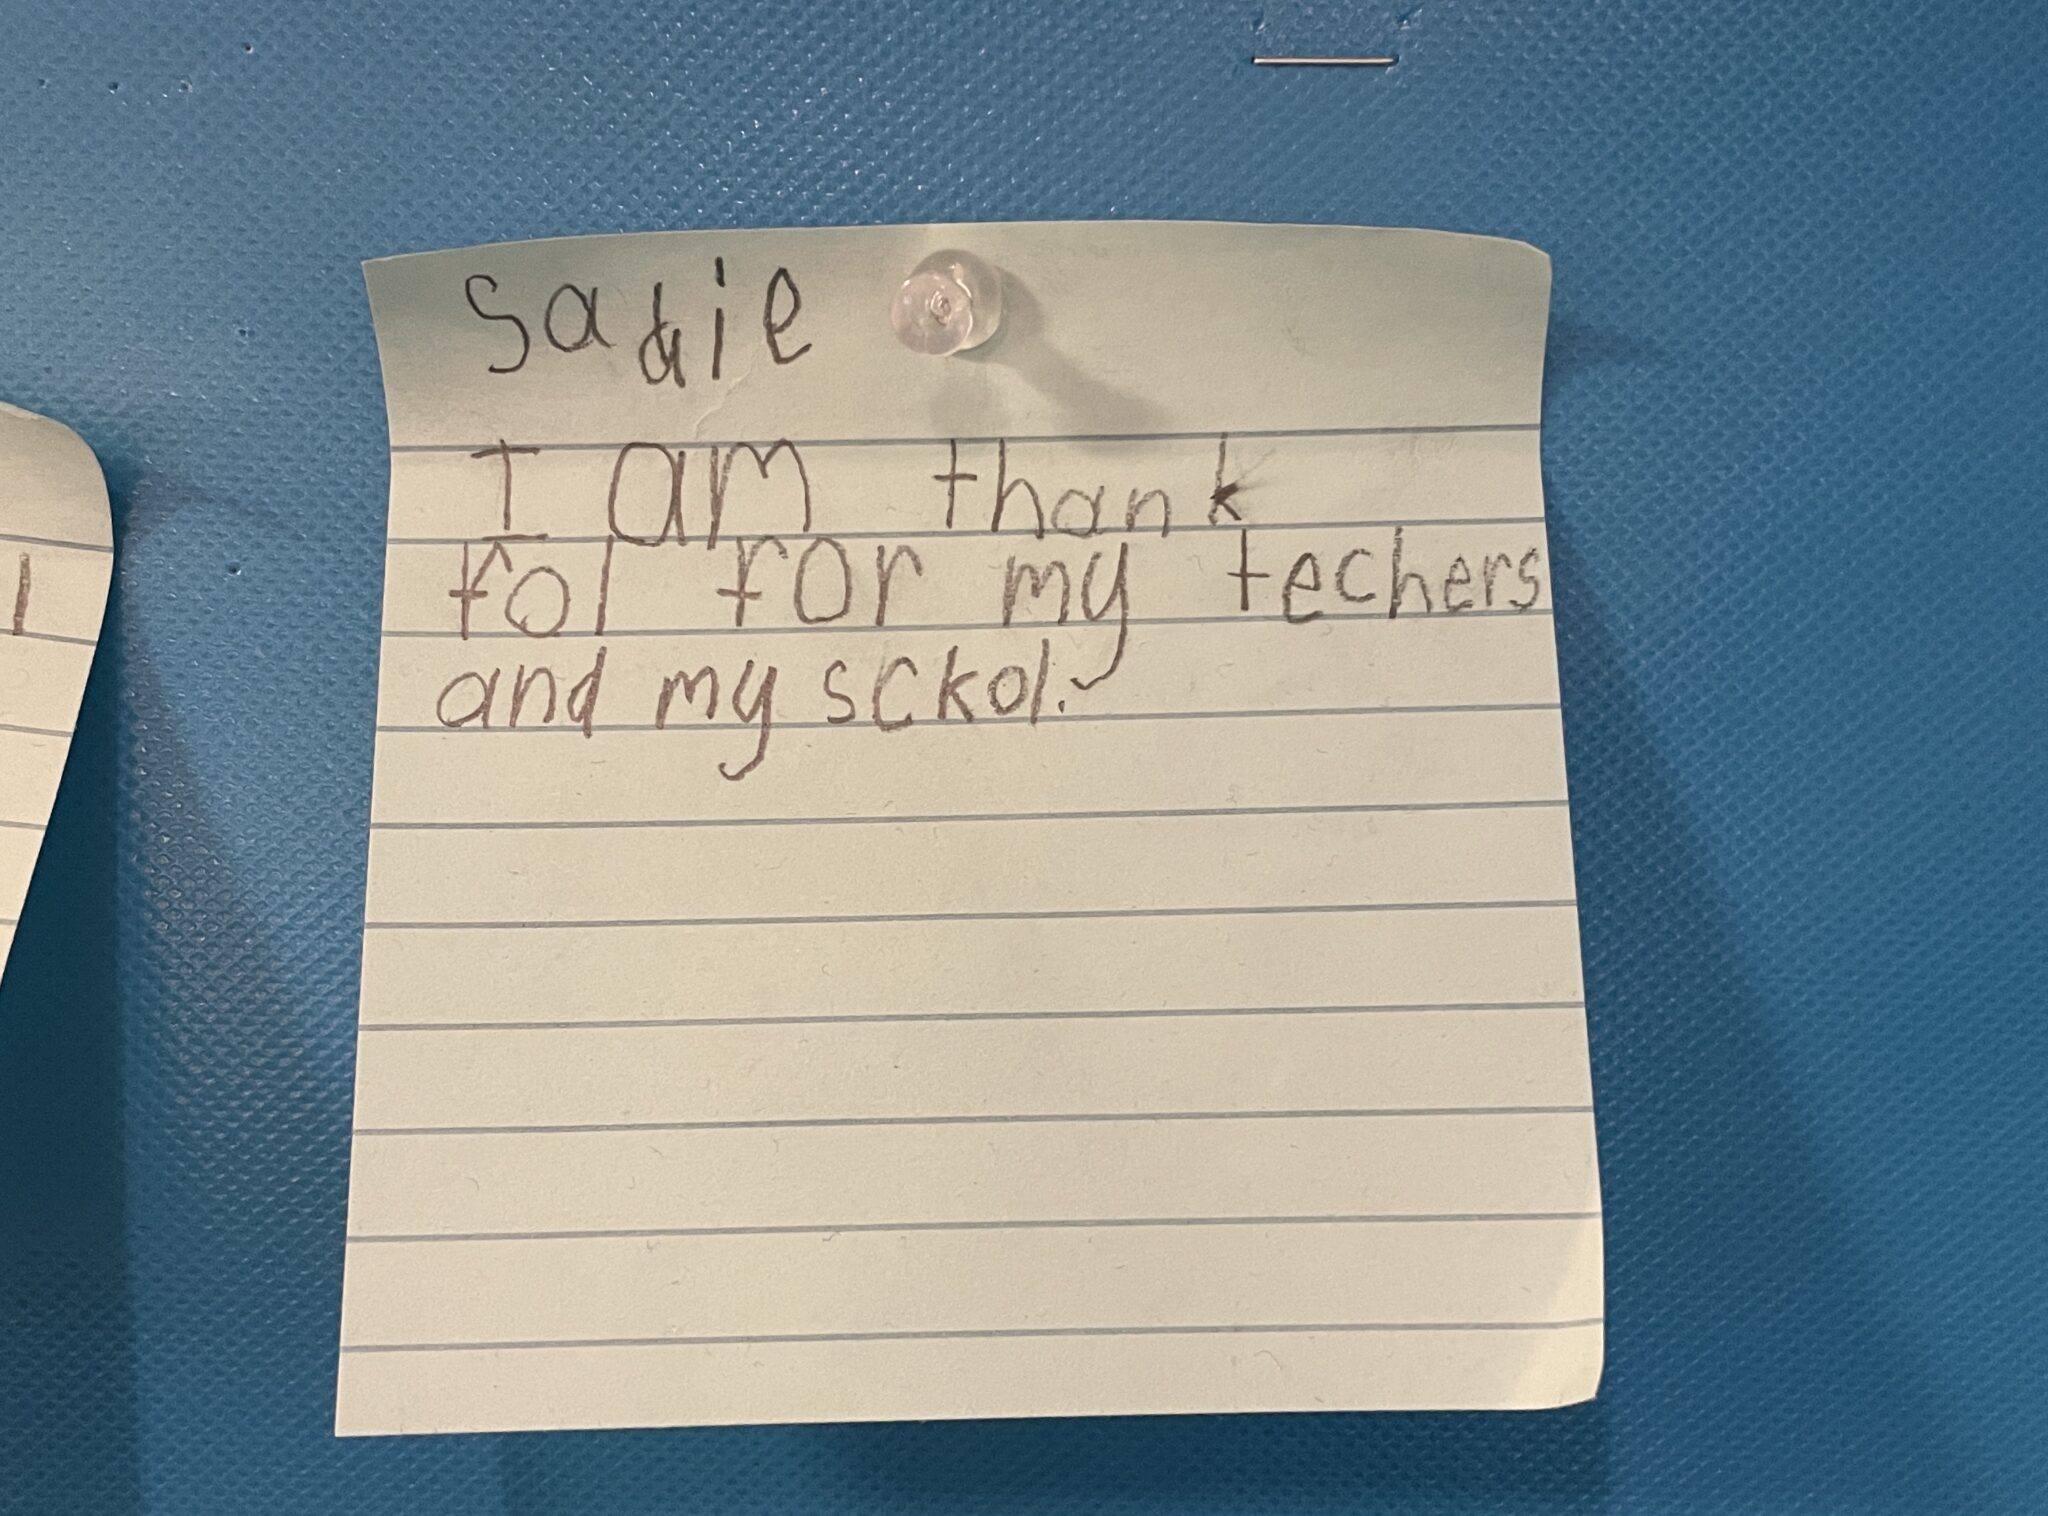 Sadie
I am thank
fol for my techers
and my sckol.